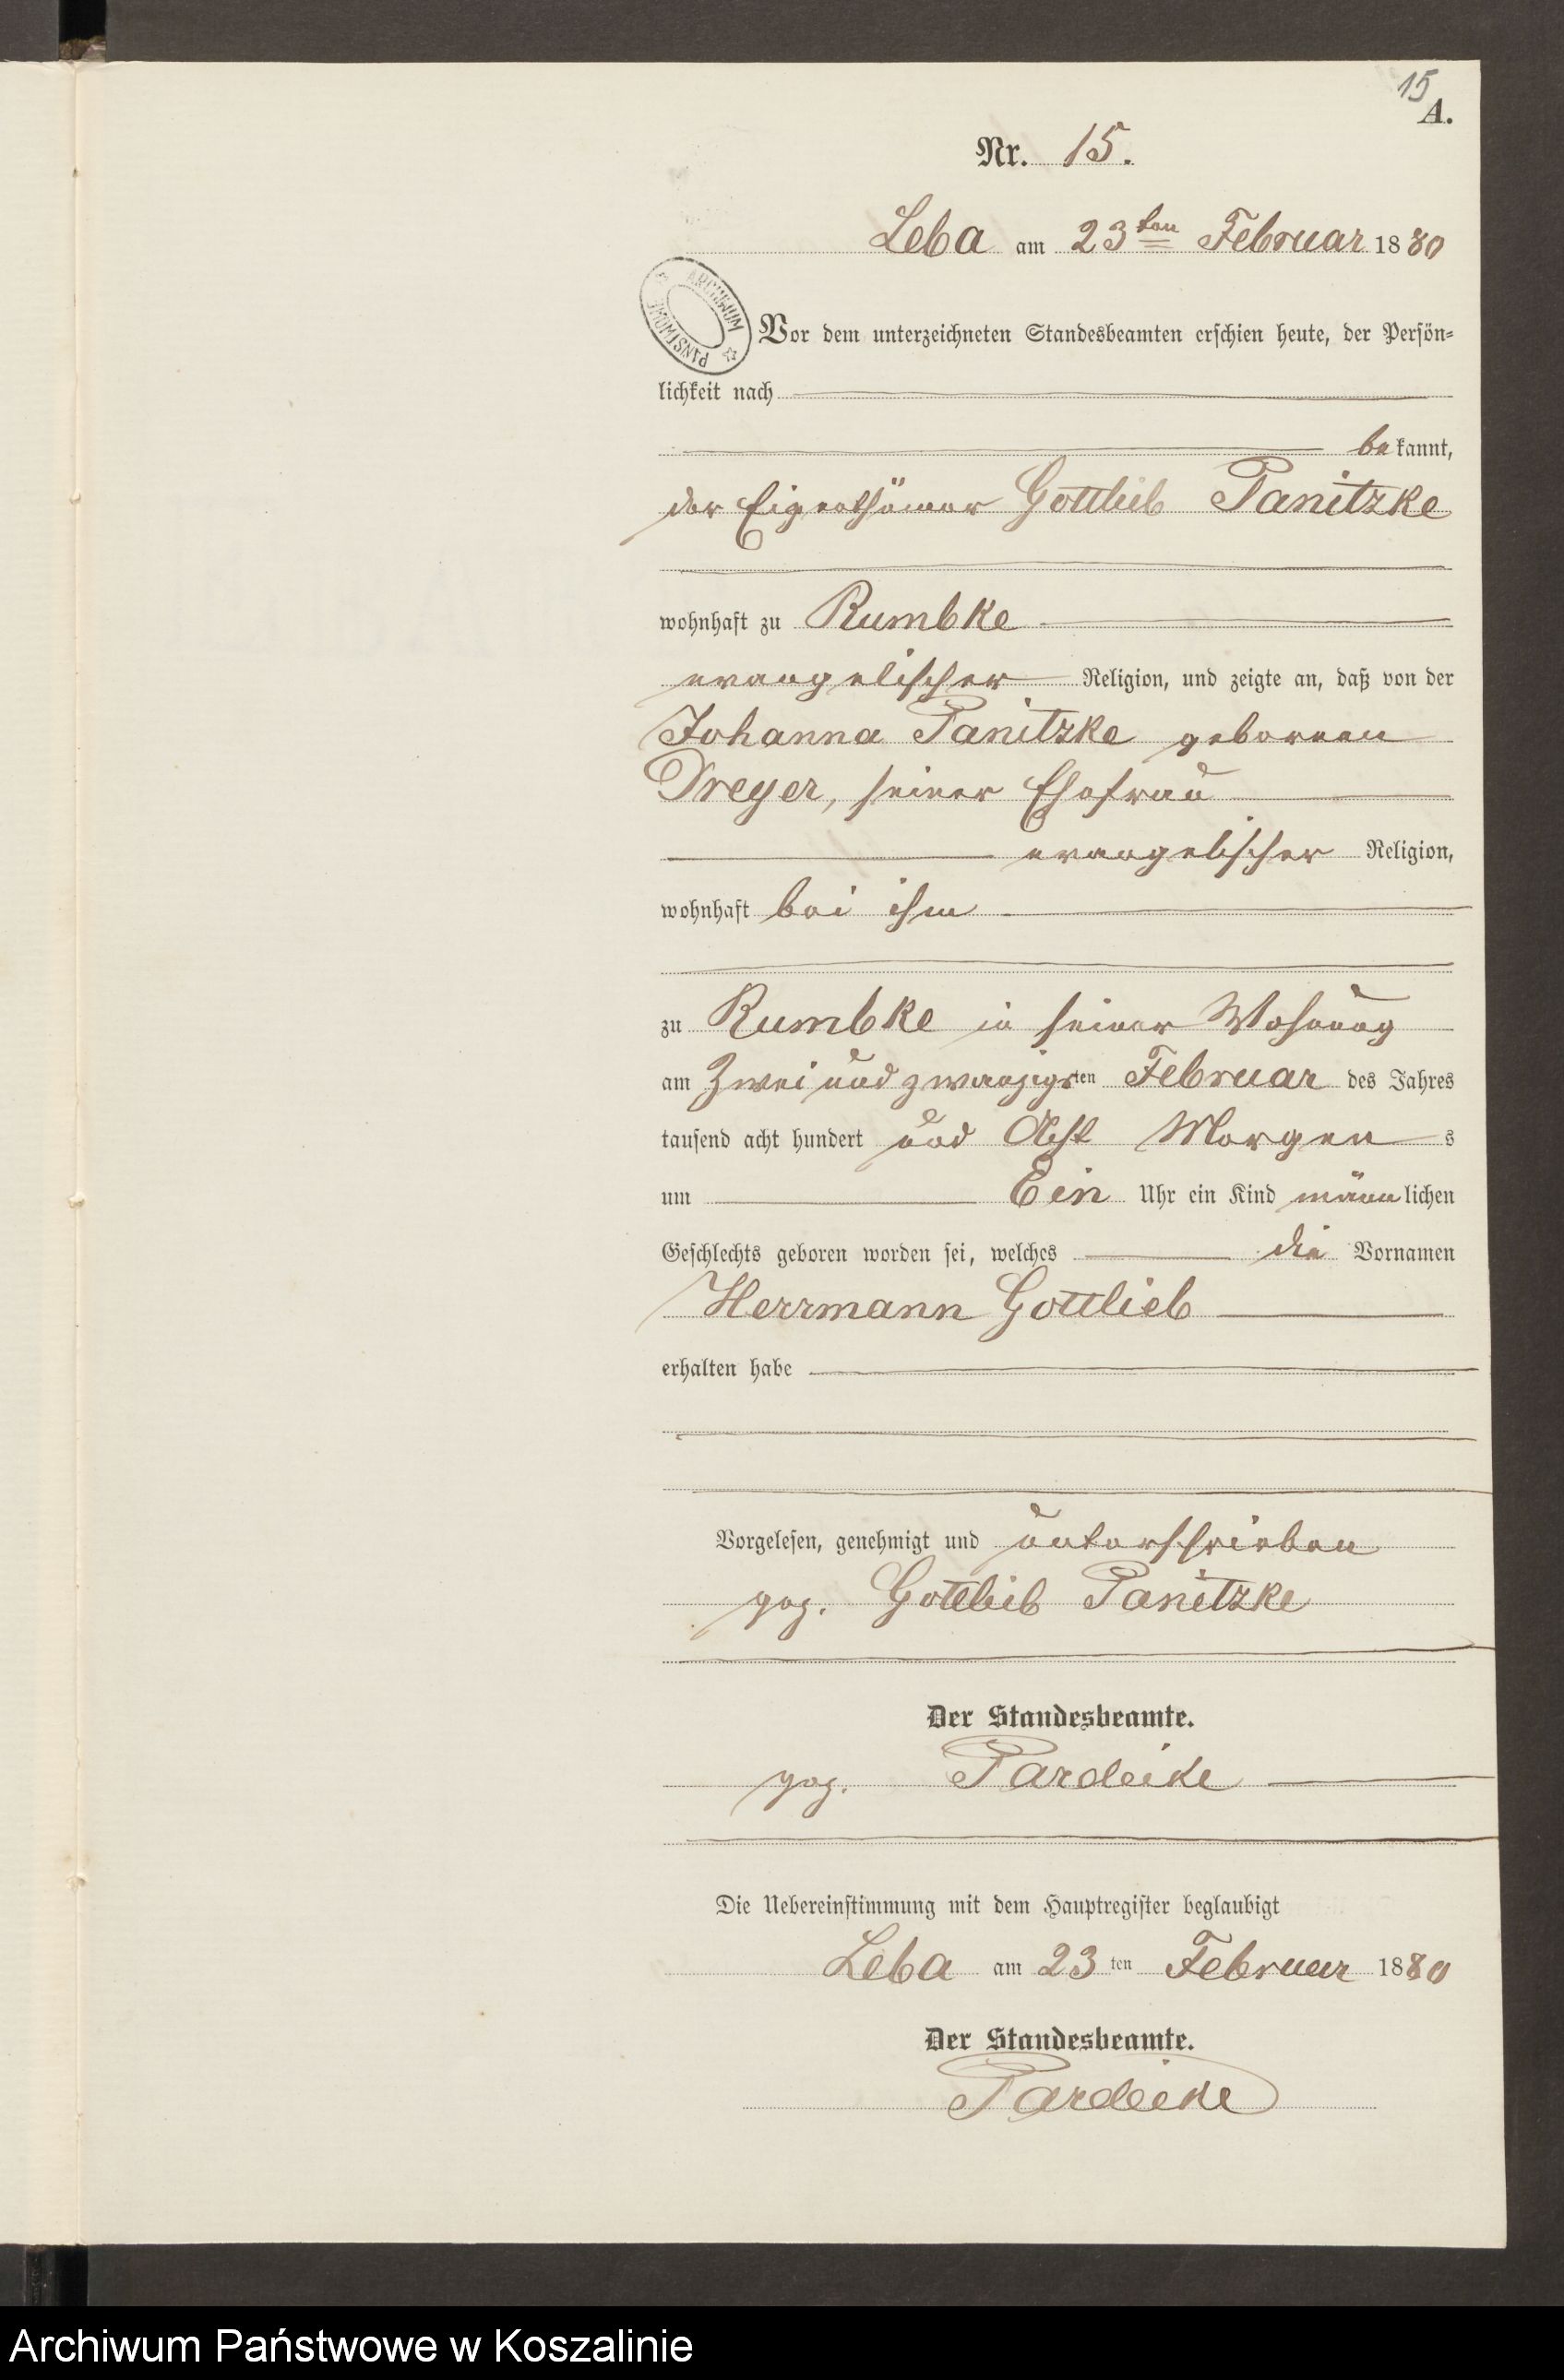 15
A.
Nr. 15.
Leba am 23ten Februar 1880
ARCHIWUM PAŃSTWOWE
Vor dem unterzeichneten Standesbeamten erschien heute, der Persön-
lichkeit nach
bekannt,
der Eigenthümer Gottlieb Panitzke
wohnhaft zu Rumbke
evangelischer Religion, und zeigte an, daß von der
Johanna Panitzke geborenen
Dreyer, seiner Ehefrau
evangelischer Religion,
wohnhaft bei ihm
zu Rumbke in seiner Wohnung
am Zwei und zwanzigsten Februar des Jahres
tausend acht hundert und Acht Morgens
um Ein Uhr ein Kind männlichen
Geschlechts geboren worden sei, welches die Vornamen
Herrmann Gottlieb
erhalten habe
Vorgelesen, genehmigt und unterschrieben
gez. Gottlieb Panitzke
Der Standesbeamte.
gez. Pardeike
Die Uebereinstimmung mit dem Hauptregister beglaubigt
Leba am 23ten Februar 1880
Der Standesbeamte.
Pardeike
Archiwum Państwowe w Koszalinie